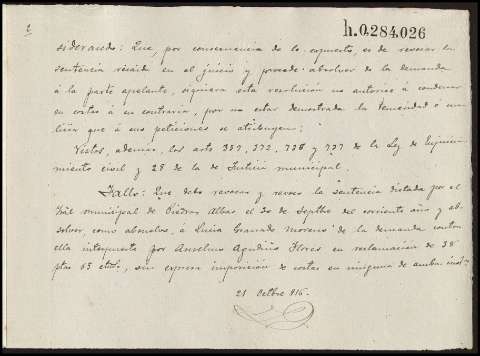 h.0.284.026
siderando: Que, por consecuencia de lo expuesto, es de revocar la
sentencia recaida en el juicio y procede absolver de la demanda
á la parte apelante, siquiera esta resolucion no autorice á condenar
en costas á su contraria, por no estar demostrada la temeridad ó ma-
licia que á sus peticiones se atribuyen;
Vistos, ademas, los arts 359, 372, 736 y 737 de la Ley de Enjuicia-
miento civil y 28 de la de Justicia municipal.
Fallo: Que debo revocar y revoco la sentencia dictada por el
Tbal municipal de Piedras Albas el 30 de Septbe del corriente año y ab-
solver, como absuelvo, á Lucia Granado Moreno de la demanda contra
ella interpuesta por Anselmo Agudiño Flores en reclamacion de 38
ptas 65 ctmos, sin expresa imposición de costas en ninguna de ambas inst
21 Octbre 916.